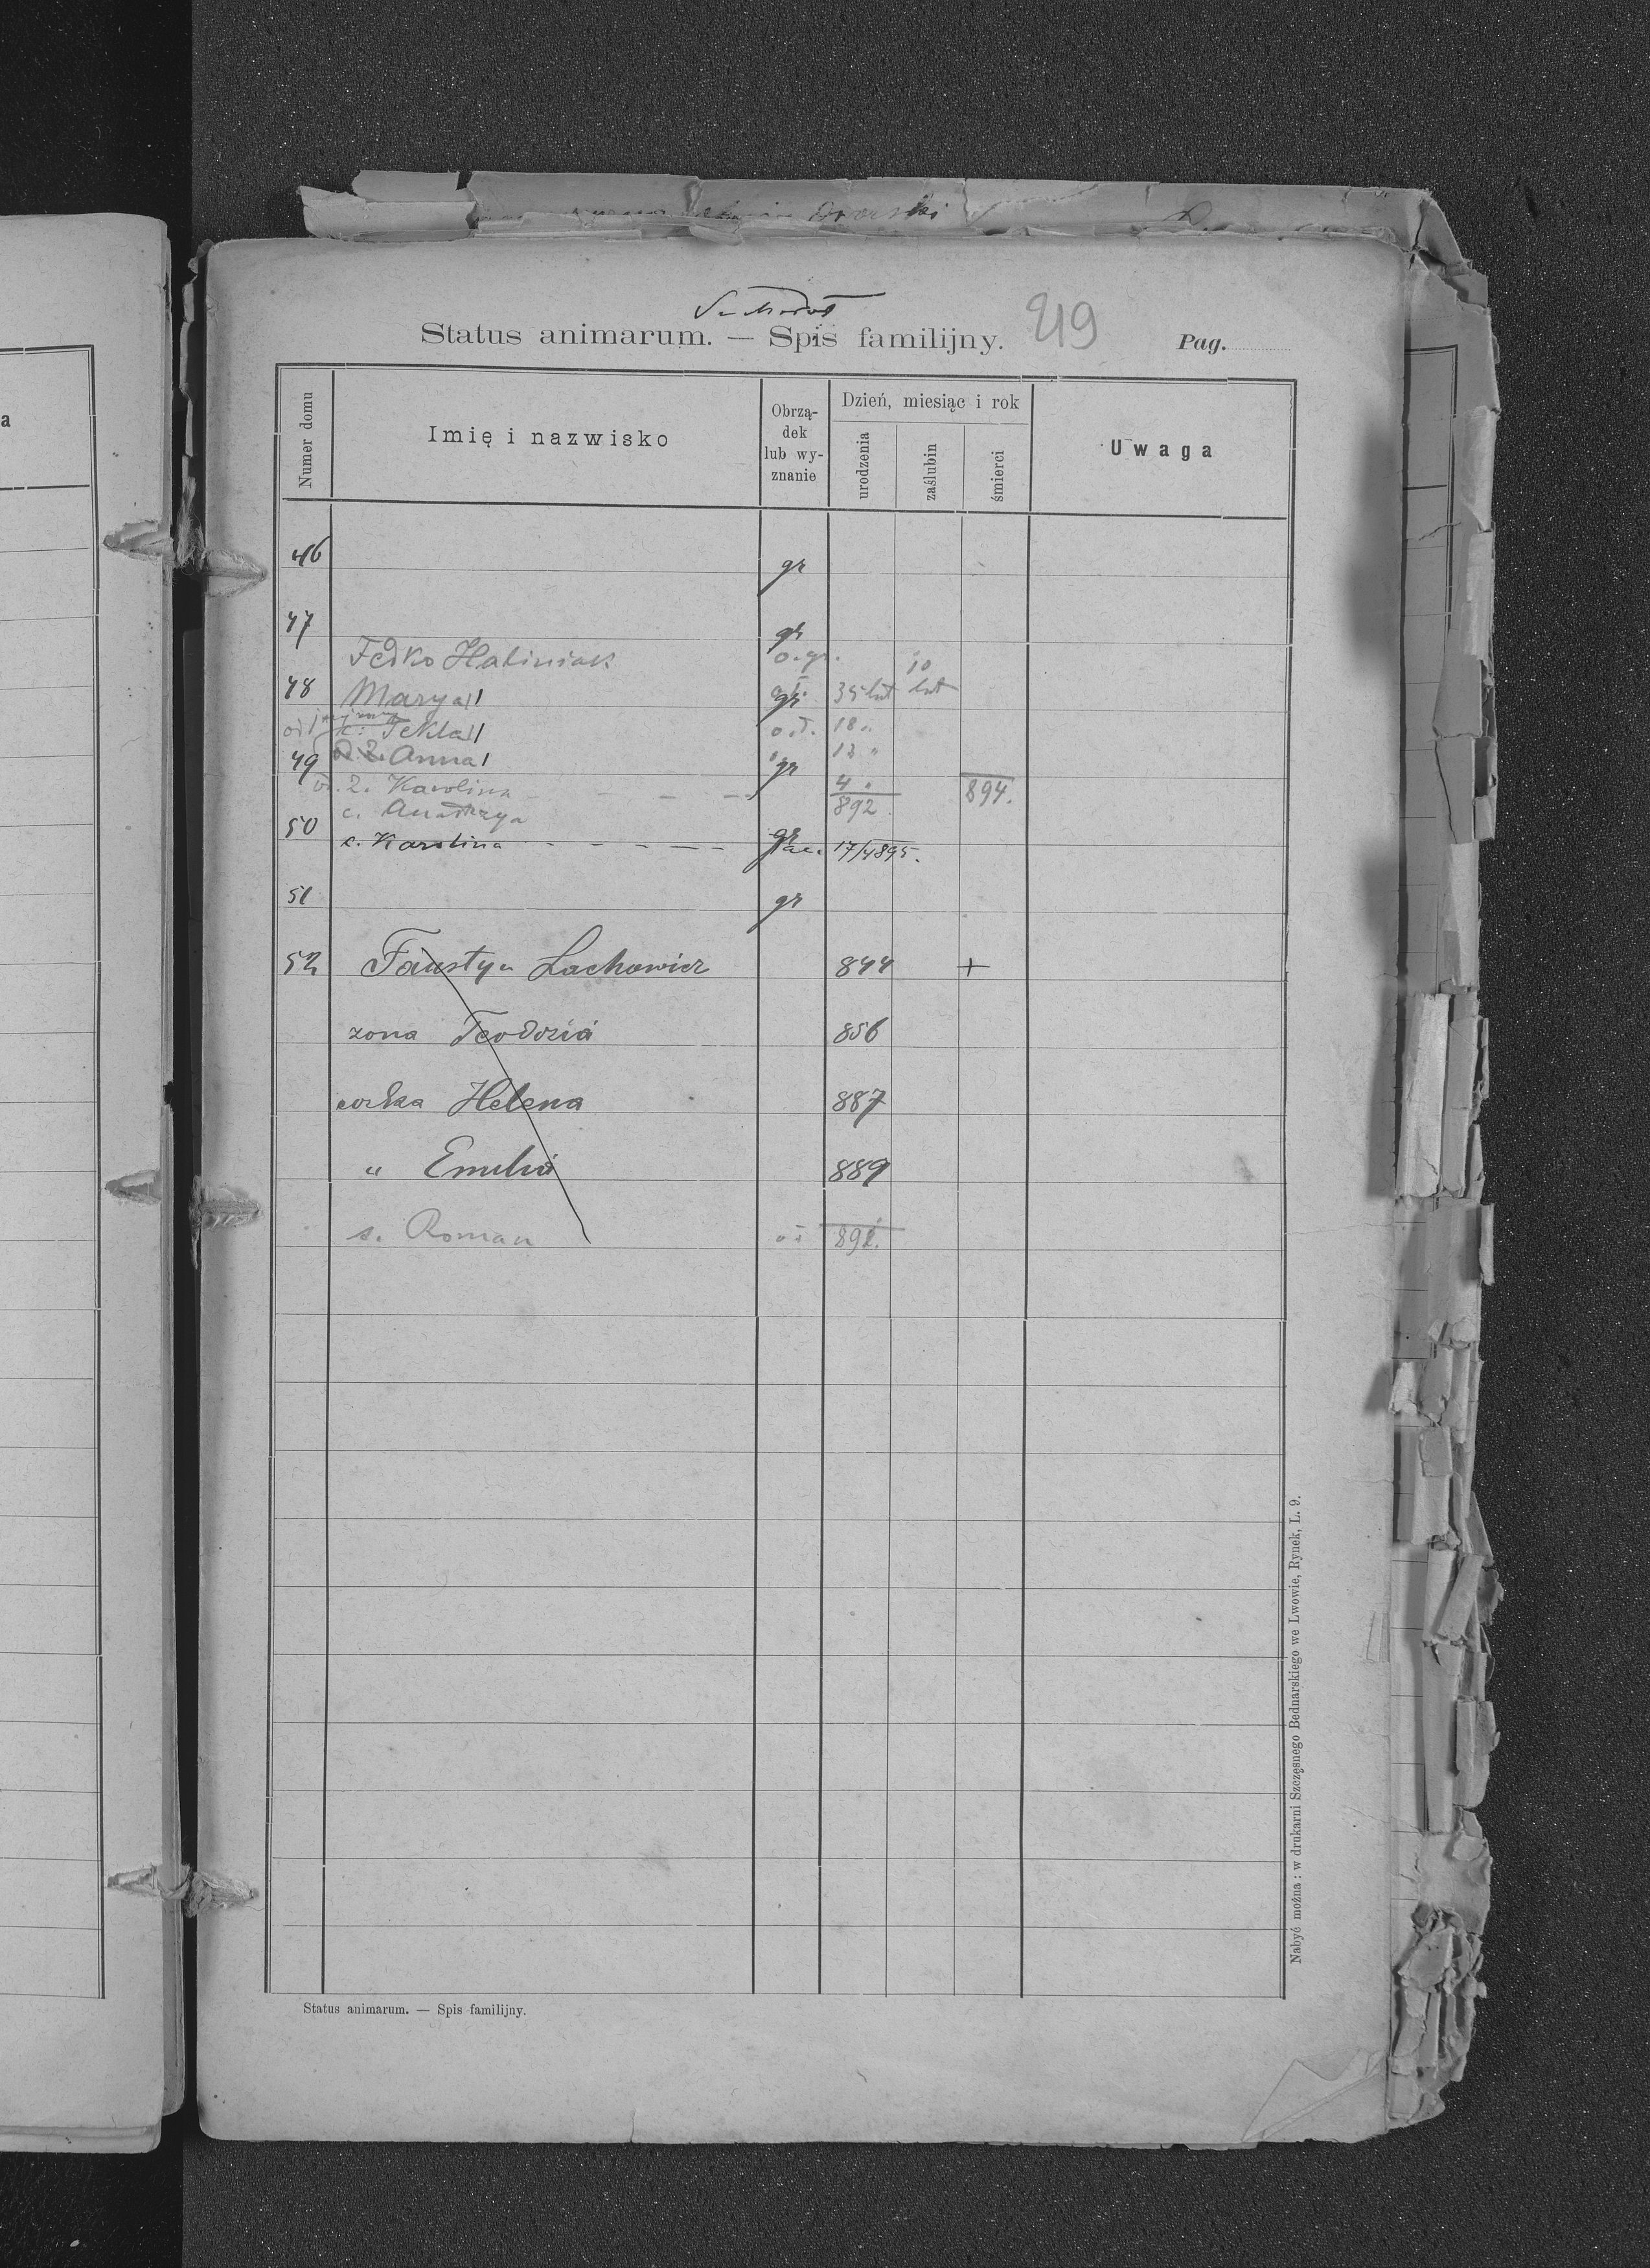 Status animarum. — Spis familijny. 219 Pag.
Numer domu
Imię i nazwisko
Obrzą-
dek
lub wy-
znanie
Dzień, miesiąc i rok
urodzenia
zaślubin
śmierci
Uwaga
46 gr
47 gr
Fedko Haliniak o.gr. 10
48 Marya gr. 35 lat lat
c. Tekla o.ł. 18 „
49 Anna gr 12 „
2. Karolina 4 „ 894.
c. Anastazya 892
50 gr
c. Karolina łac. 17/4 895.
51 gr
52 Faustyn Lachowicz 844 +
zona Teodozia 856
corka Helena 887
" Emilia 889
s. Roman 891.
Nabyć można : w drukarni Szczęsnego Bednarskiego we Lwowie, Rynek, L. 9.
Status animarum. — Spis familijny.